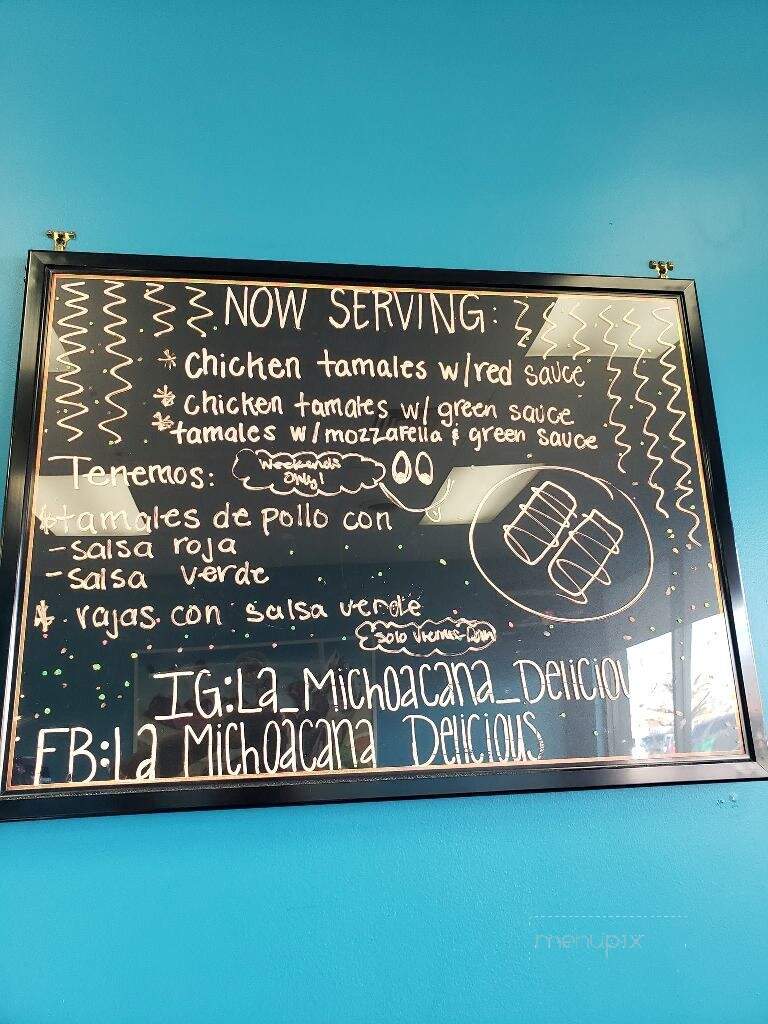 NOW SERVING:
* Chicken tamales w/red sauce
* Chicken tamales w/ green sauce
* tamales w/mozzarella & green sauce
Weekends
Only!
Tenemos:
* tamales de pollo con
- salsa roja
- salsa verde
* rajas con salsa verde
solo Viernes-Dom
IG:La_Michoacana_Deliciou
FB:La Michoacana Delicious
menupix